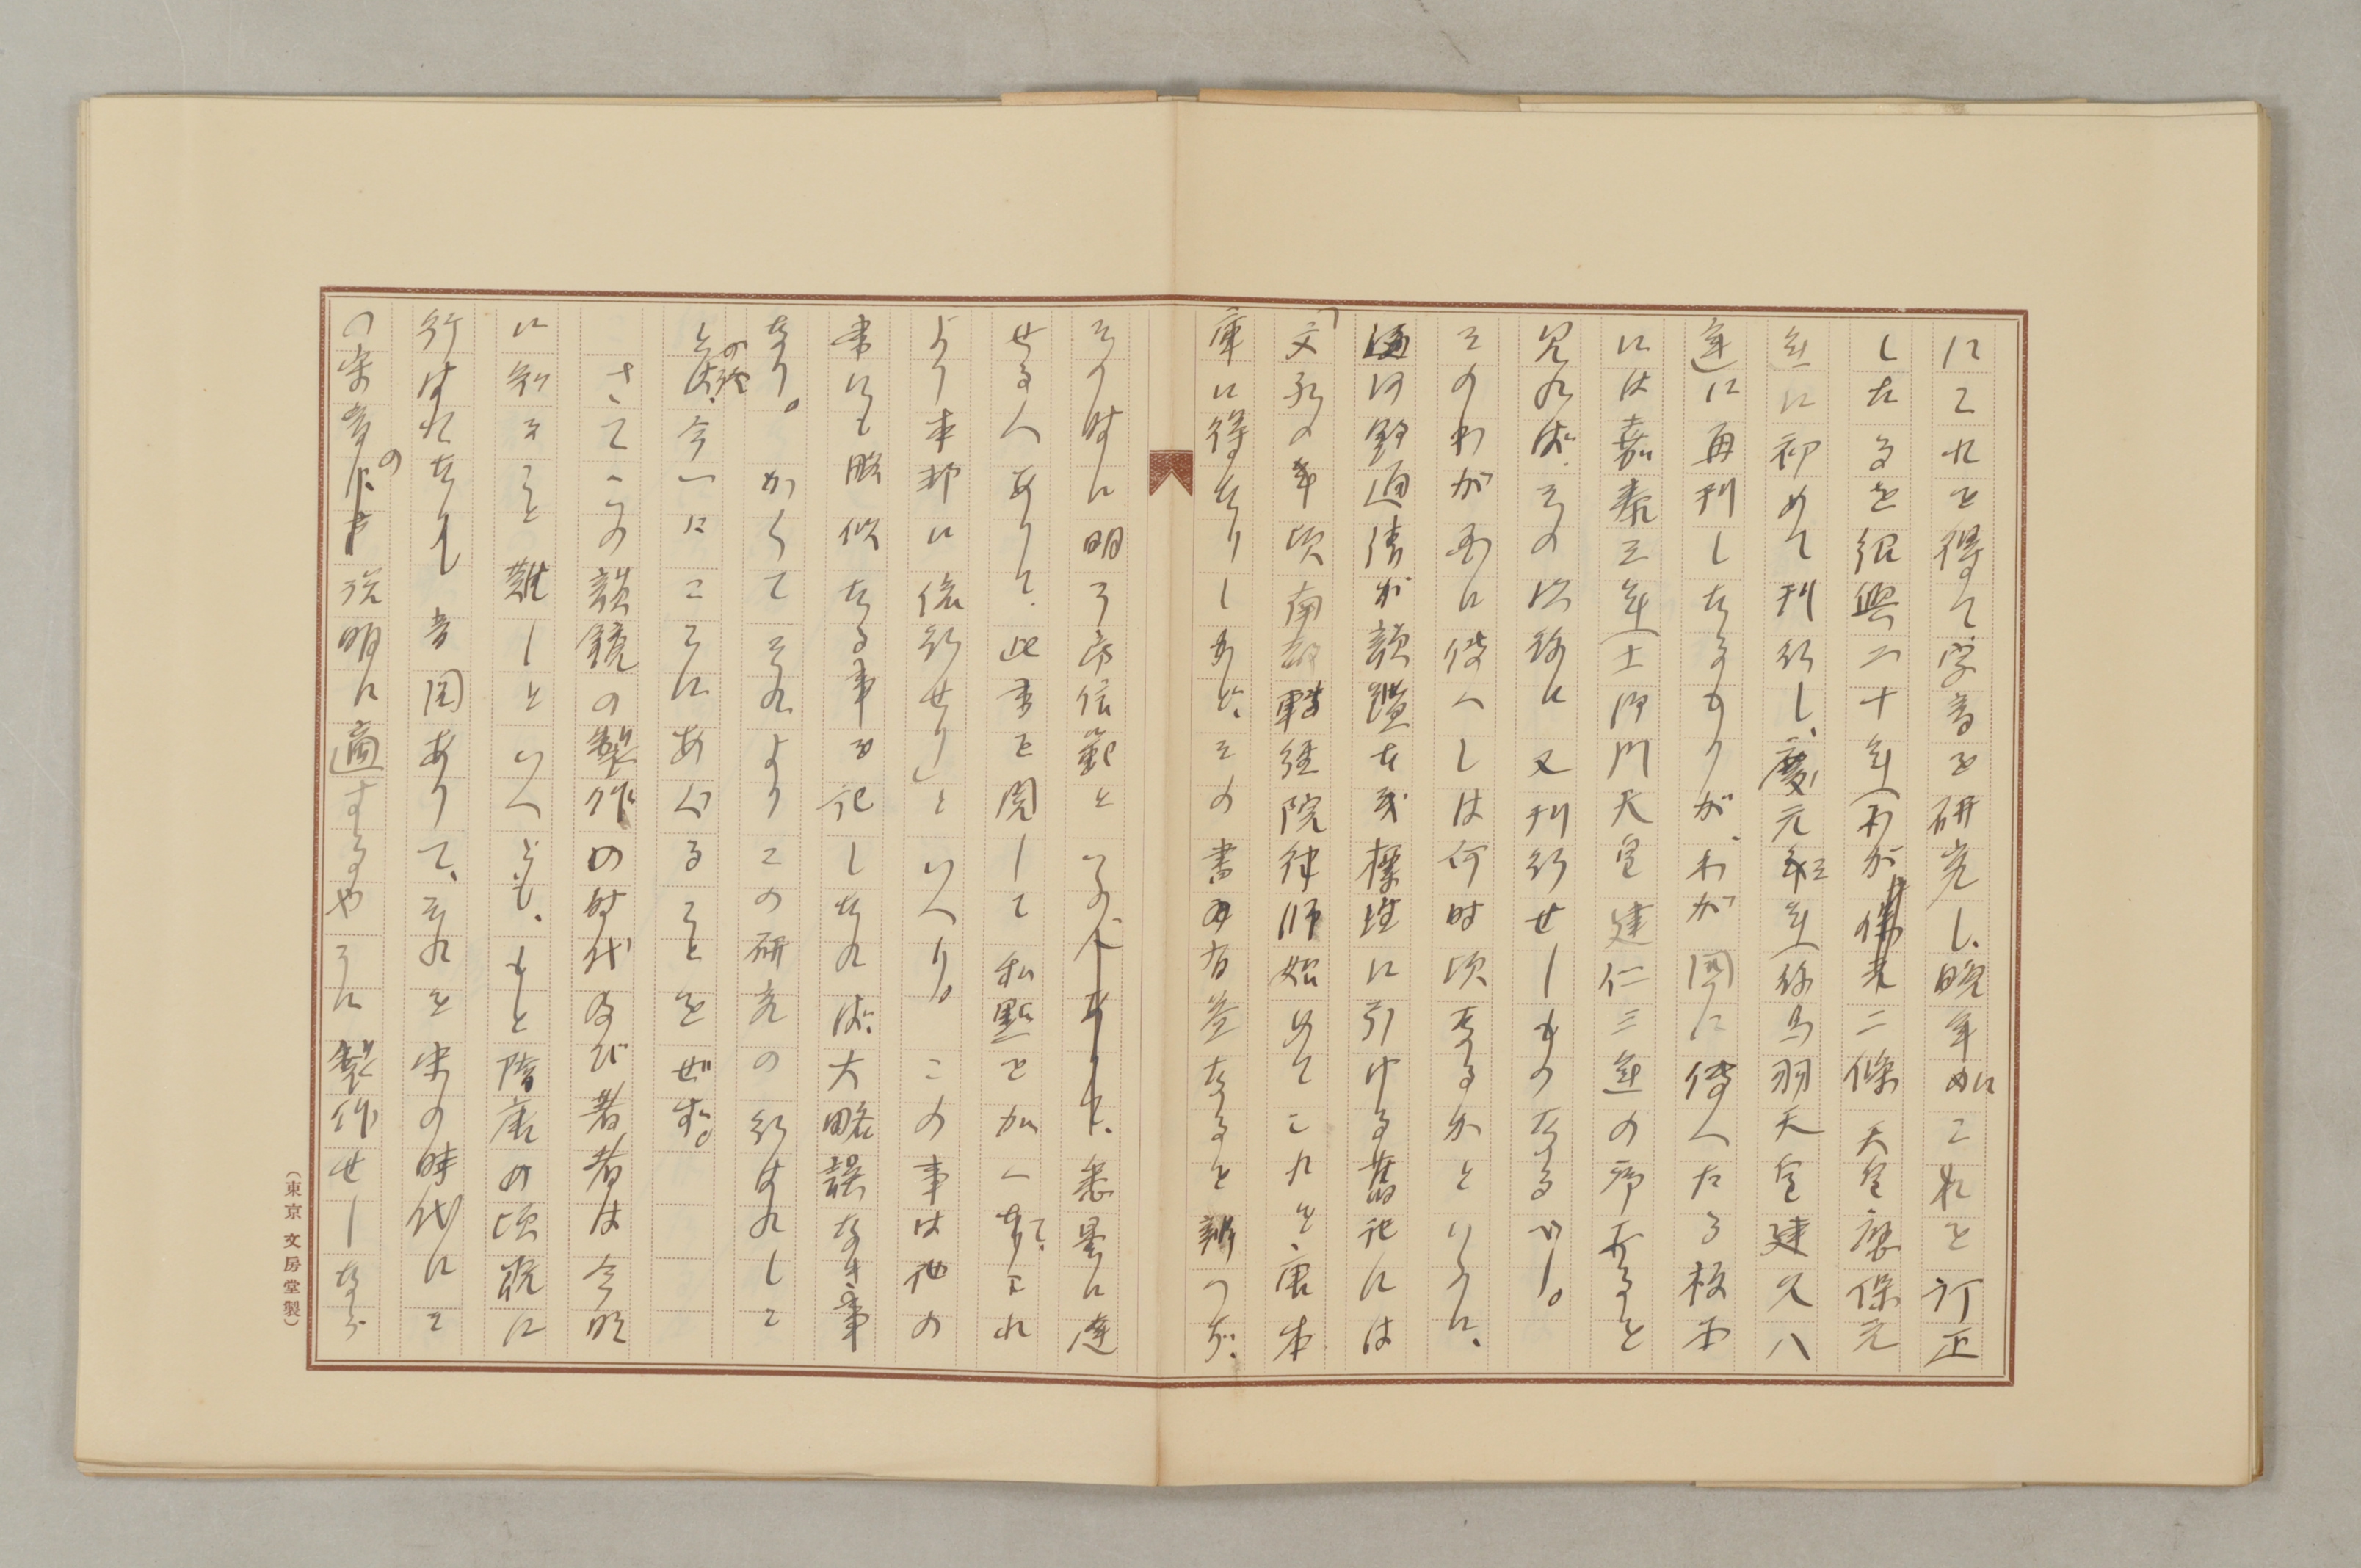 にこれを得て字音を研究し、晩年にこれを訂正
したるを紹興二十年(わが二條天皇應保元
年に初めて刊行し、慶元三年(後鳥羽天皇建久八
年に再刊したるものなりが、わが國に傳へたる板本
には嘉泰三年(土御門天皇建仁三年の序あると
見れば、その以後に又刊行せしものなるべし。
そのわが國に傳へしは何時頃なるかといふに、
河野通清が韻鑑古義標註に引ける舊記には
「文永の年頃南都轉經院律師始めてこれを、唐本
庫に得たりしかど、その書有益なるを辨つず、
その時に明了房信範といふ人ありて、悉曇に達
せる人ありて、此書を閲して私點を加へたり、これ
より本邦に流行せり」といへり。この事は他の
書にも略似たる事を記したれば、大略誤なき事
なり。かくてそれよりこの研究の行はれしこ
とは、今一にここにあぐることをせず。
さてこの韻鏡の製作の時代及び著者は今明
に知ること難しといへども、もと隋唐の頃既に
行はれたりし音図ありて、それを宋の時代にて
の字音の説明に適するやうに製作せしなら
(東京文房堂製)